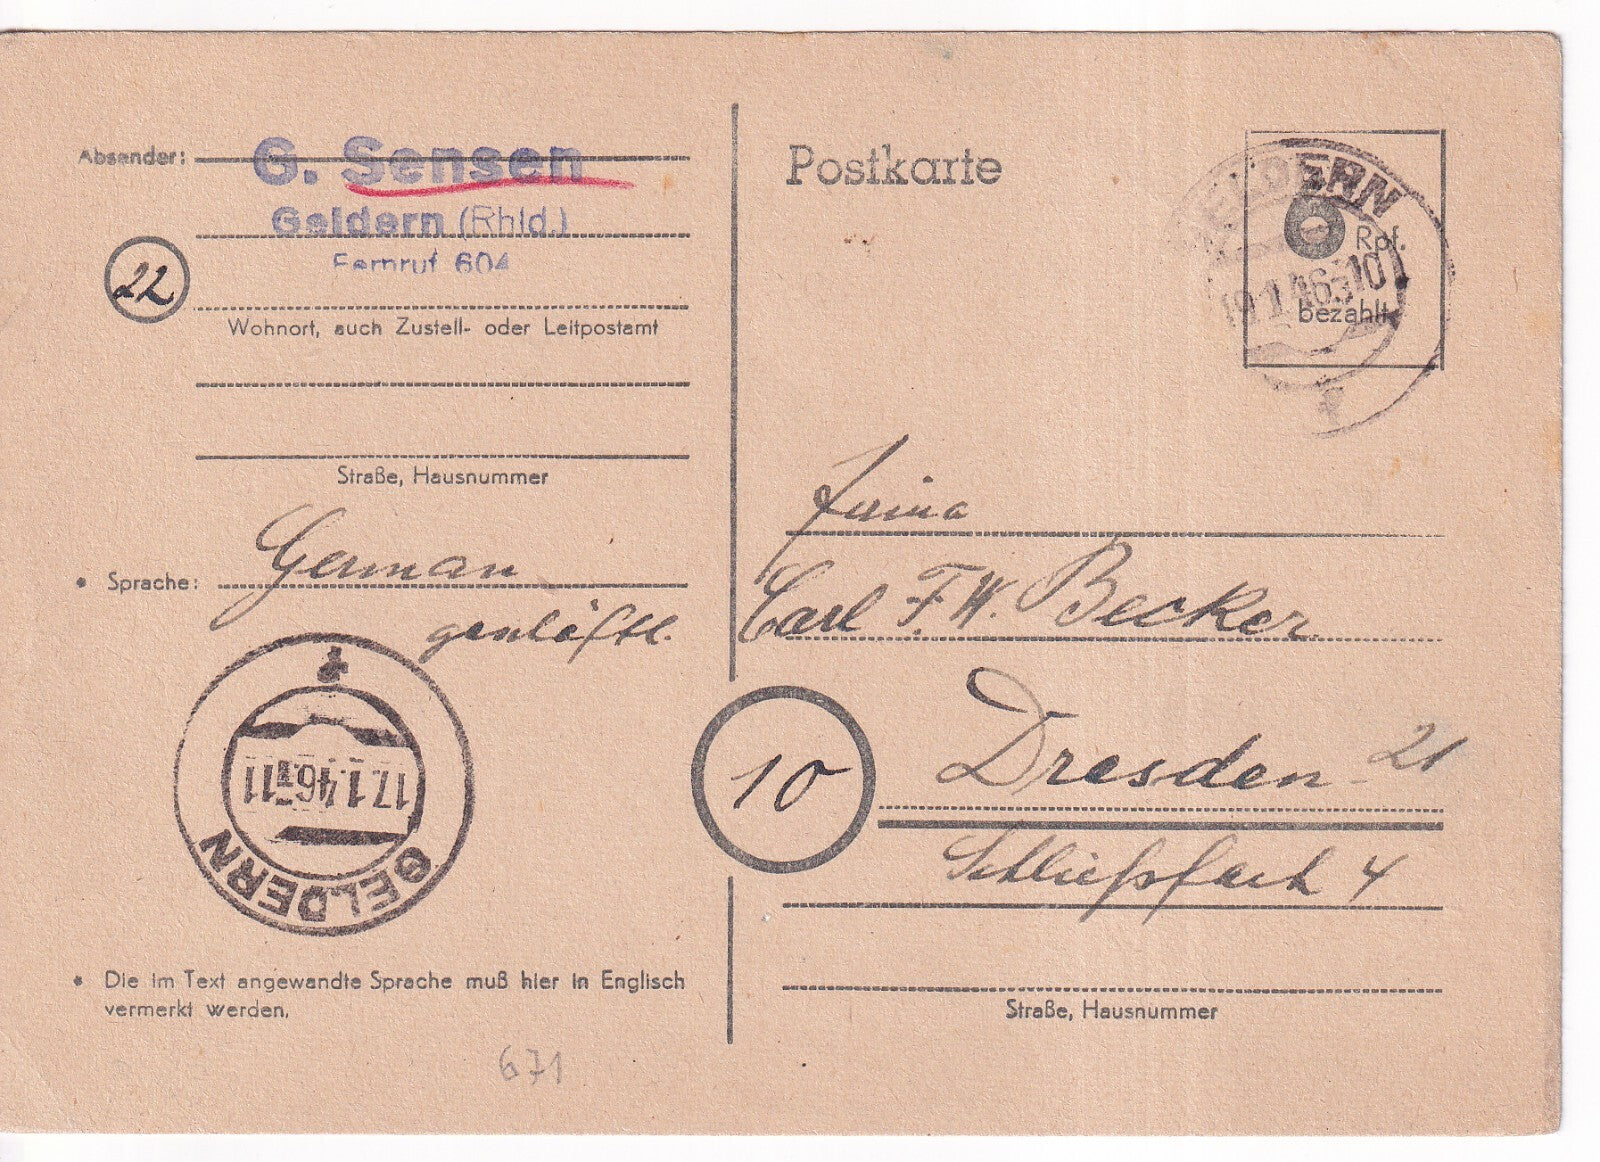 Absender:
G. Sensen
Geldern (Rhld.)
Fernruf 604
22
Wohnort, auch Zustell- oder Leitpostamt
Straße, Hausnummer
• Sprache: German
geschäftl.
GELDERN
17.1.46-11
• Die im Text angewandte Sprache muß hier in Englisch
vermerkt werden.
671
Postkarte
GELDERN
Rpf.
bezahlt
Firma
Carl F.W. Becker.
10
Dresden - 21
Schließfach 4
Straße, Hausnummer